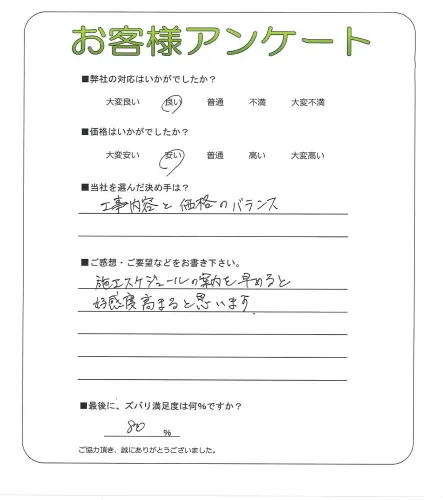 お客様アンケート
■弊社の対応はいかがでしたか?
大変良い 良い 普通 不満 大変不満
■価格はいかがでしたか?
大変安い 安い 普通 高い 大変高い
■当社を選んだ決め手は?
工事内容と価格のバランス
■ご感想・ご要望などをお書き下さい。
施工スケジュールの案内を早めると
好感度高まると思います.
■最後に、ズバリ満足度は何%ですか?
80 %
ご協力頂き、誠にありがとうございました。